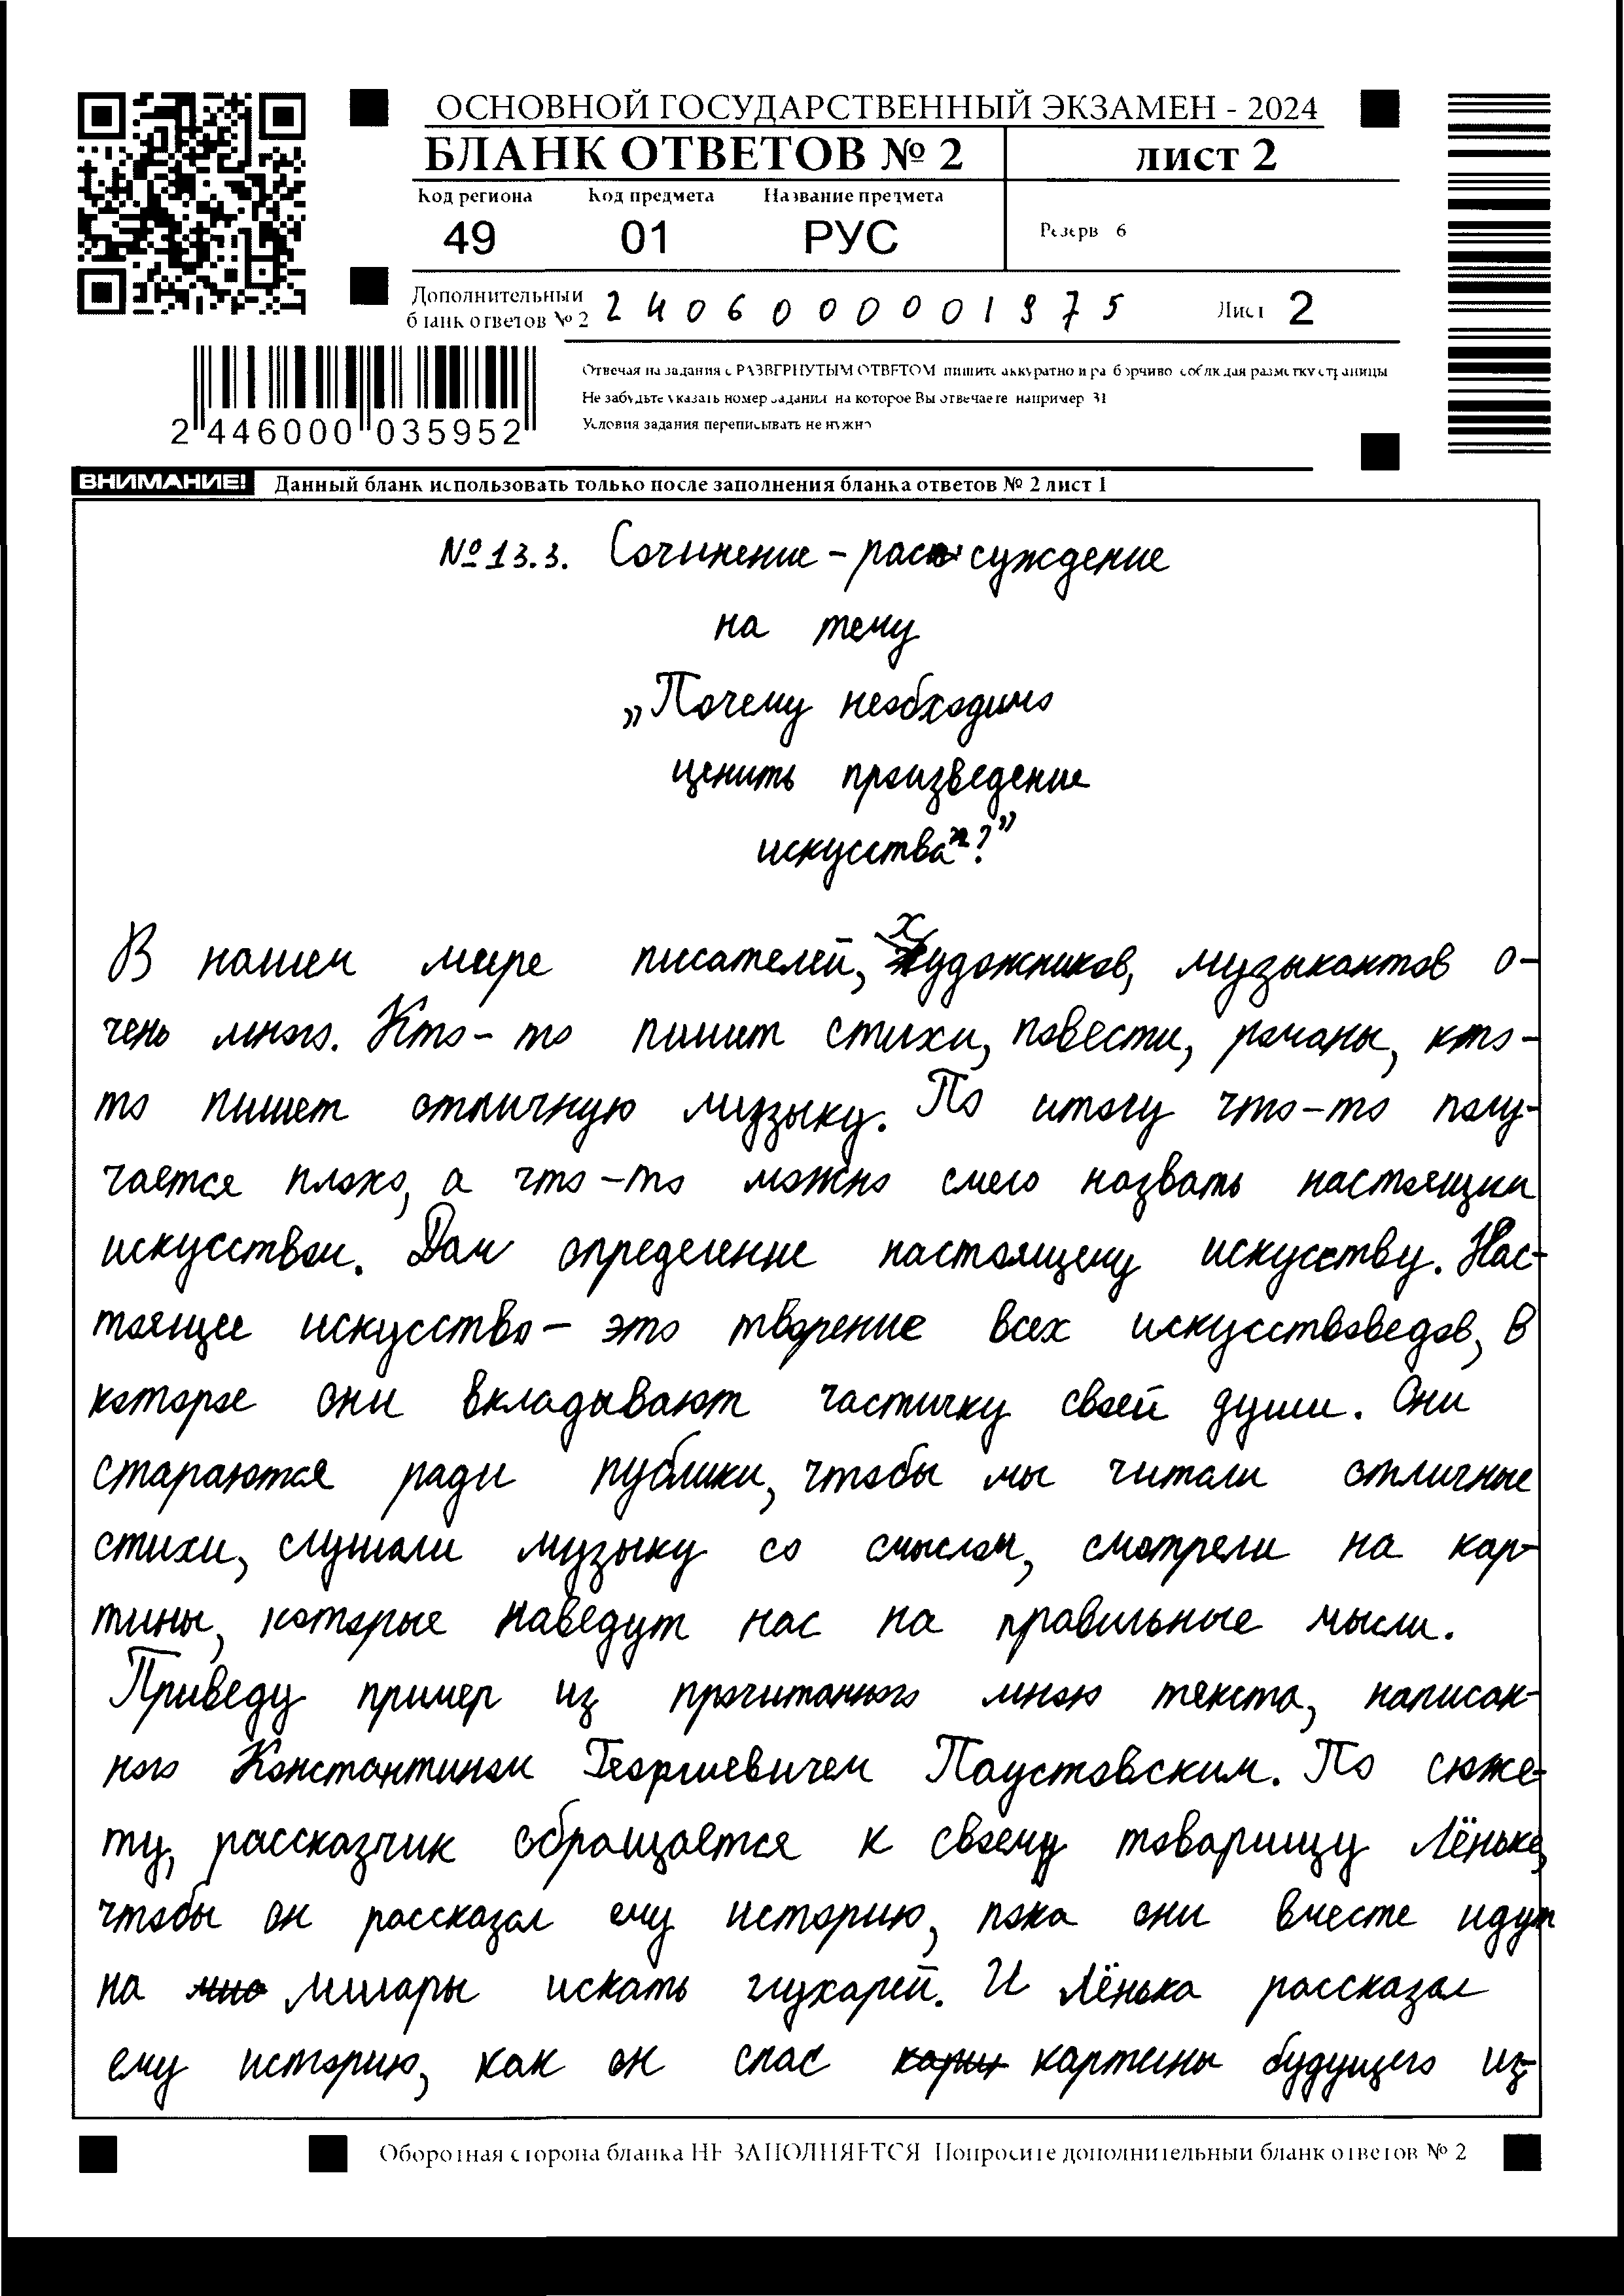 ОСНОВНОЙ ГОСУДАРСТВЕННЫЙ ЭКЗАМЕН - 2024
БЛАНК ОТВЕТОВ № 2 лист 2
Код региона Код предмета Название предмета
49 01 РУС Резерв 6
Дополнительный
бланк ответов № 2 2406000001975 Лист 2
Отвечая на задания с РАЗВЕРНУТЫМ ОТВЕТОМ пишите аккуратно и разборчиво соблюдая разметку страницы
Не забудьте указать номер задания на которое Вы отвечаете например 31
Условия задания переписывать не нужно
2 446000 035952
ВНИМАНИЕ! Данный бланк использовать только после заполнения бланка ответов № 2 лист 1
№ 13.3. Сочинение - рассуждение
на тему
„Почему необходимо
ценить произведение
искусства?”
В нашем мире писателей, художников, музыкантов о-
чень много. Кто-то пишет стихи, повести, романы, кто-
то пишет отличную музыку. По итогу что-то полу-
чается плохо, а что-то можно смело назвать настоящим
искусством. Дам определение настоящему искусству. Нас-
тоящее искусство - это творение всех искусствоведов, в
которое они вкладывают частичку своей души. Они
стараются ради публики, чтобы мы читали отличные
стихи, слушали музыку со смыслом, смотрели на кар-
тины, которые наведут нас на правильные мысли.
Приведу пример из прочитанного мною текста, написан-
ного Константином Георгиевичем Паустовским. По сюже-
ту, рассказчик обращается к своему товарищу Лёньке,
чтобы он рассказал ему историю, пока они вместе идут
на мшары искать глухарей. И Лёнька рассказал
ему историю, как он спас картины будущего из-
Оборотная сторона бланка НЕ ЗАПОЛНЯЕТСЯ Попросите дополнительный бланк ответов № 2